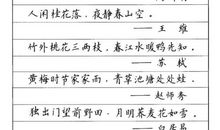 人闲桂花落，夜静春山空。
——王维
竹外桃花三两枝，春江水暖鸭先知。
——苏轼
黄梅时节家家雨，青草池塘处处蛙。
——赵师秀
独出门望前野田，月明荞麦花如雪。
——白居易